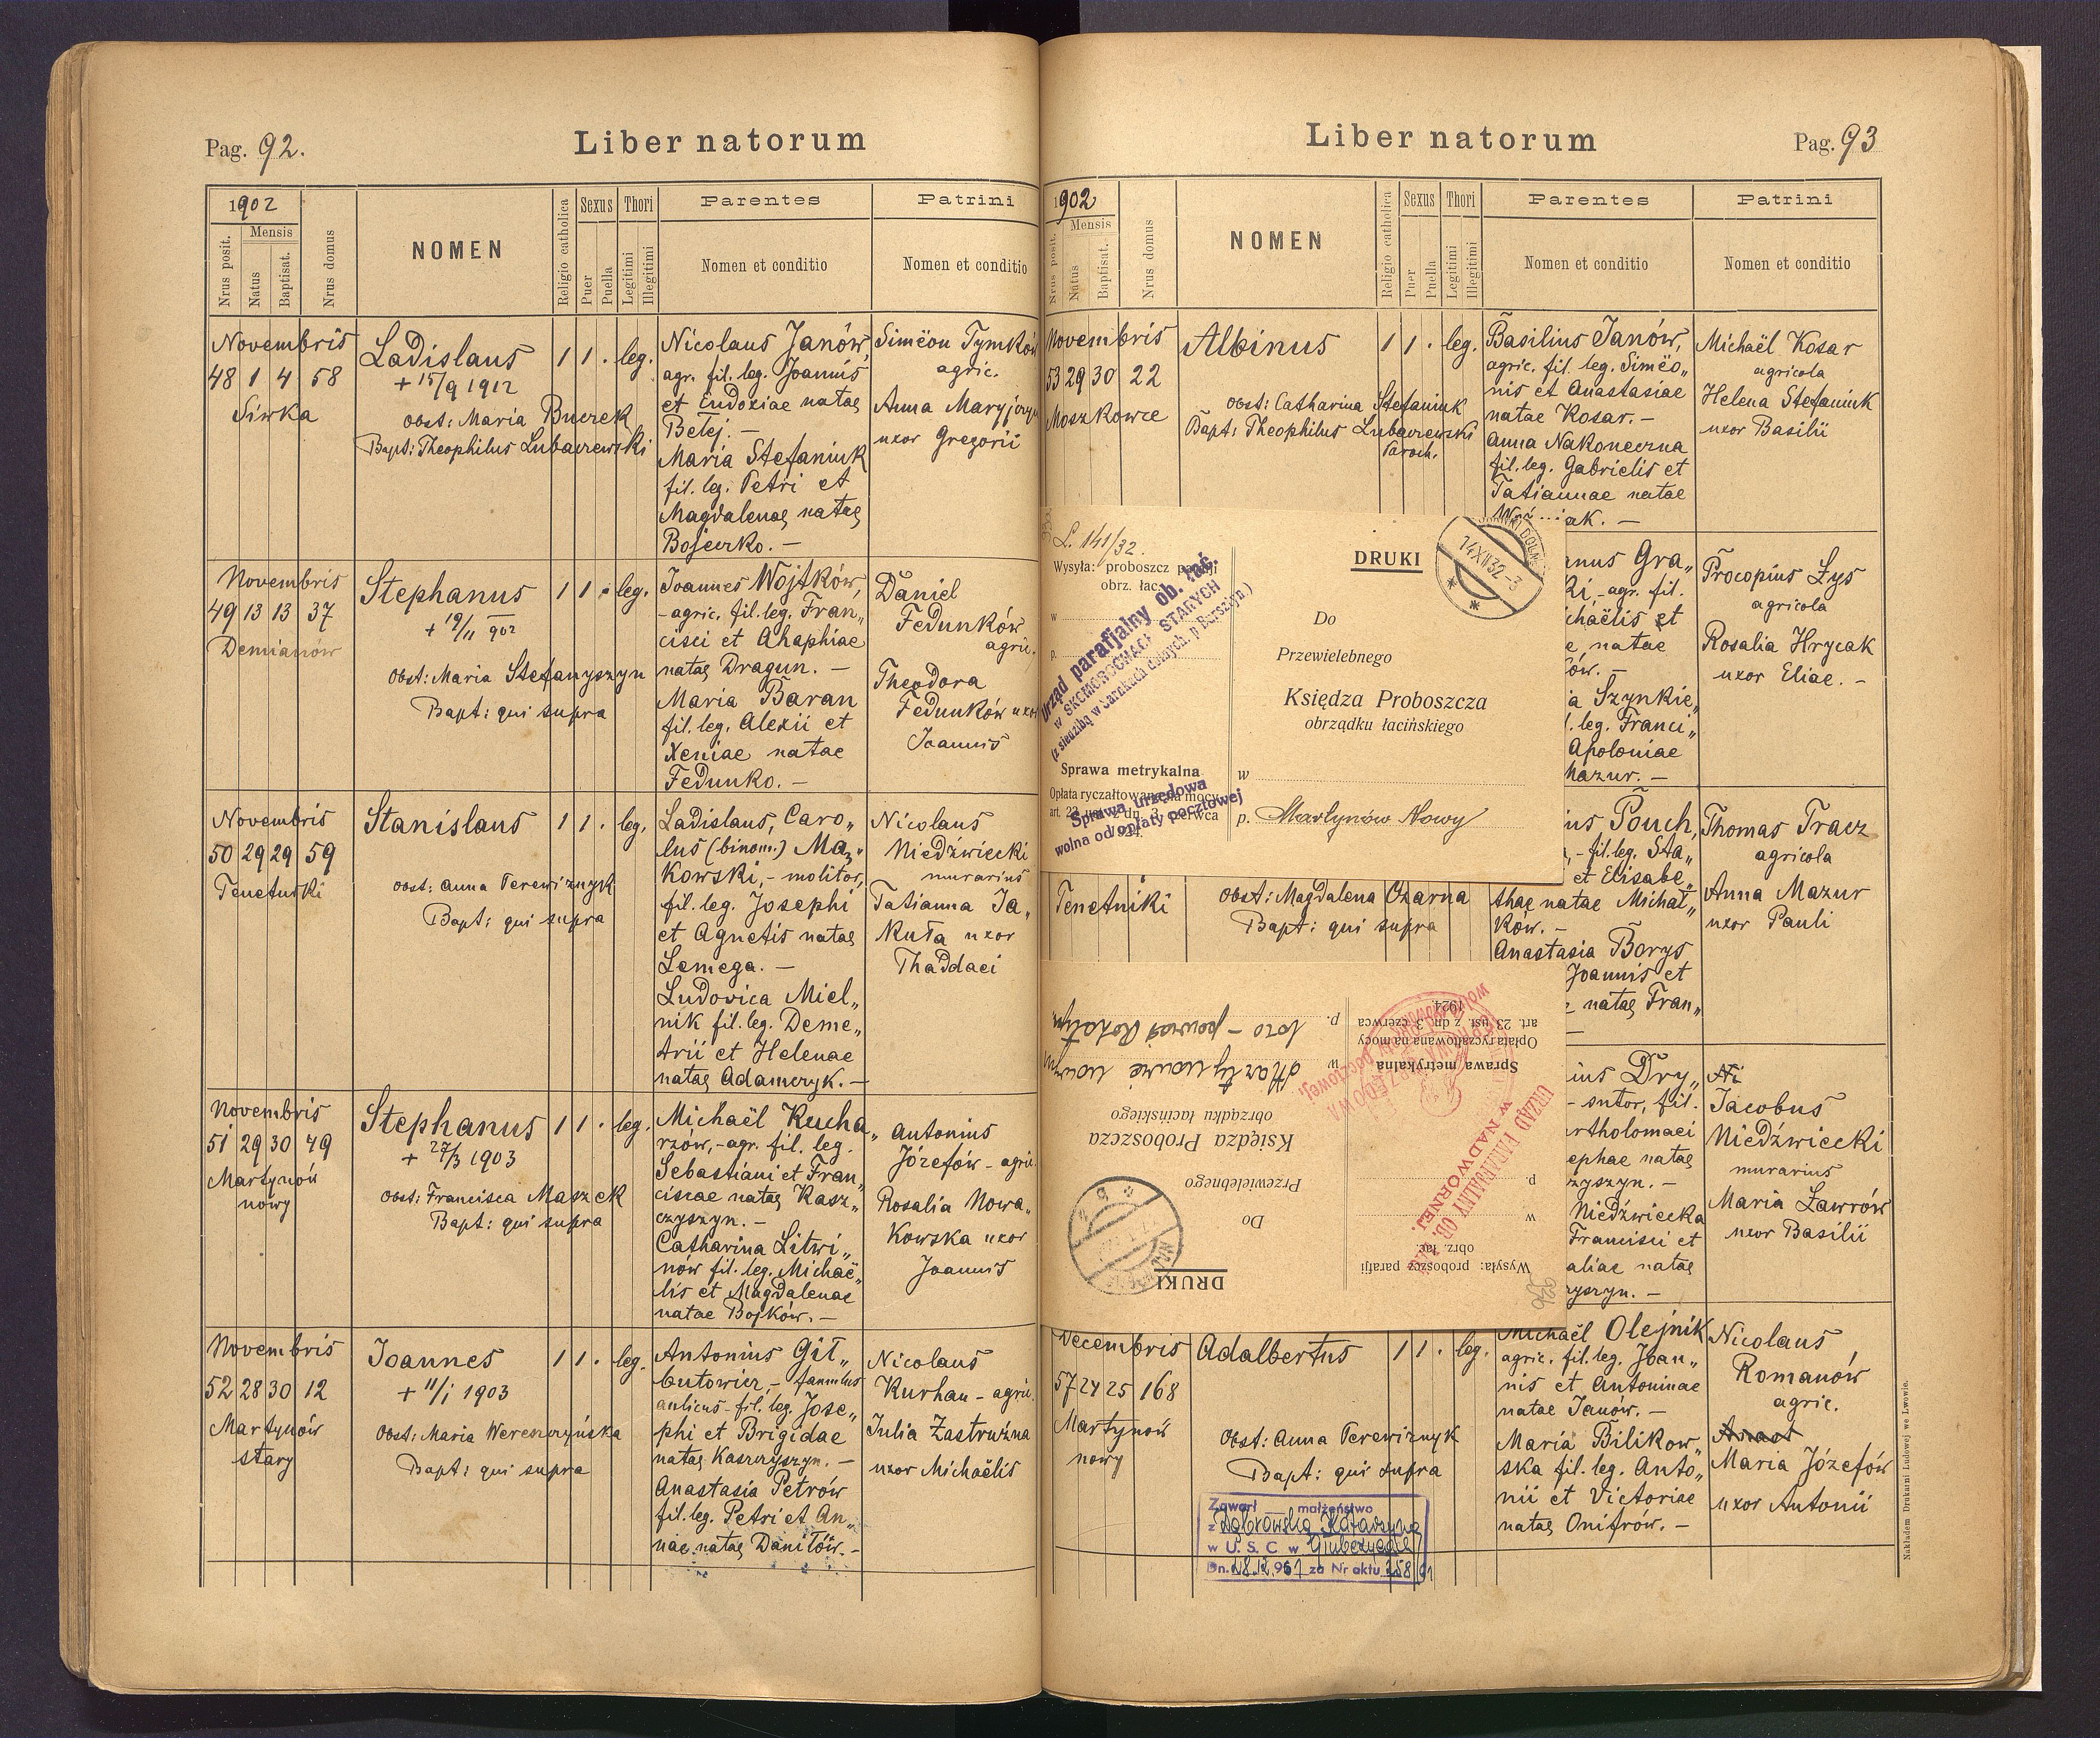 Pag. 92.
Liber natorum
1902
Mensis
Nrus posit.
Natus
Baptisat.
Nrus domus
NOMEN
Religio catholica
Sexus
Puer
Puella
Thori
Legitimi
Illegitimi
Parentes
Nomen et conditio
Patrini
Nomen et conditio
Novembris
48 1 4 58
Siwka
Ladislaus
+ 15/9 1912
Obst: Maria Buczek
Bapt: Theophilus Lubaczewski
1 1 . leg.
Nicolaus Janów,
agr. fil. leg. Joannis
et Eudoxiae natae
Betej. —
Maria Stefaniuk
fil. leg. Petri et
Magdalenae natae
Bojeczko. —
Simëon Tymków
agric.
Anna
uxor Gregorii
Novembris
49 13 13 37
Demianów
Stephanus
+ 19/11 902
Obst: Maria Stefanyszyn
Bapt: qui supra
1 1 . leg.
Joannes Wojtków,
-agric. fil. leg. Fran„
cisci et Ahaphiae
natae Dragun. —
Maria Baran
fil. leg. Alexii et
Xeniae natae
Fedunko. —
Daniel
Fedunków
agric.
Theodora
Fedunków uxor
Joannis
Novembris
50 29 29 59
Tenetniki
Stanislaus
Obst: Anna Perewiznyk
Bapt: qui supra
1 1 . leg.
Ladislaus, Caro„
lus (binom.) Maz„
kowski, - molitor,
fil. leg. Josephi
et Agnetis natae
Lemega. —
Ludovica Miel„
nik fil. leg. Deme„
trii et Helenae
natae Adamczyk. —
Nicolaus
Niedźwiecki
murarius
Tatianna Ja„
kuta uxor
Thaddaei
Novembris
51 29 30 49
Martynów
nowy
Stephanus
+ 27/3 1903
Obst: Francisca Maszek
Bapt: qui supra
1 1 . leg.
Michaël Kucha„
rzów, - agr. fil. leg.
Sebastiani et Fran„
ciscae natae Kasz„
czyszyn. —
Catharina Litwi„
nów fil. leg. Michaë„
lis et Magdalenae
natae Bojków. —
Antonius
Józefów - agric.
Rosalia Nowa„
kowska uxor
Joannis
Novembris
52 28 30 12
Martynów
stary
Joannes
+ 11/1 1903
Obst: Maria Wereszczyńska
Bapt: qui supra
1 1 . leg.
Antonius Git„
butowicz, - famulus
aulicus - fil. leg. Jose„
phi et Brigidae
natae Kaszczyszyn. —
Anastasia Petrów
fil. leg. Petri et An„
nae natae Daniłów. —
Nicolaus
Kurhan - agric.
Julia Zastruzna
uxor Michaëlis
Liber natorum
Pag. 93
1902
Mensis
Nrus posit.
Natus
Baptisat.
Nrus domus
NOMEN
Religio catholica
Sexus
Puer
Puella
Thori
Legitimi
Illegitimi
Parentes
Nomen et conditio
Patrini
Nomen et conditio
Novembris
53 29 30 22
Moszkowce
Albinus
Obst: Catharina Stefaniuk
Bapt: Theophilus Lubaczewski
Paroch.
1 1 . leg.
Basilius Janów,
agric. fil. leg. Simëo„
nis et Anastasiae
natae Kosar. —
Anna Nakoneczna
fil. leg. Gabrielis et
Tatiannae natae
Michaël Kosar
agricola
Helena Stefaniuk
uxor Basilii
L. 141/32.
Wysyła: proboszcz parafji
obrz. łac.
w
p.
Urząd parafjalny ob. łać.
w SKOMOROCHACH STARYCH
(z siedzibą w Sarnkach dolnych, p Bursztyn.)
Sprawa metrykalna
Opłata ryczałtowana na mocy
art. 23 ust. z dn. 3 czerwca
Sprawa urzędowa
wolna od opłaty pocztowej
DRUKI
14XII32-3
Do
Przewielebnego
Księdza Proboszcza
obrządku łacińskiego
w
p. Martynów Nowy
anus Gra„
ki, - agr. fil.
chaëlis et
e natae
ów. —
a Szynkie„
l. leg. Franci„
Apoloniae
Mazur. —
Procopius Łys
agricola
Rosalia Hrycak
uxor Eliae. —
Tenetniki
Obst: Magdalena Czarna
Bapt: qui supra
ius Pouch,
, - fil. leg. Sta„
et Elisabe„
thae natae Michał„
ków. —
Anastasia Borys
Joannis et
natae Fran„
Thomas Tracz
agricola
Anna Mazur
uxor Pauli
DRUKI
Do
Przewielebnego
Księdza Proboszcza
obrządku łacińskiego
w Martynowie nowym
p. loco - powiat Rohatyn
Wysyła: proboszcz parafji
obrz. łac.
w
p.
URZĄD PARAFJALNY OB. ŁAC.
W NADWÓRNEJ.
Sprawa metrykalna
Opłata ryczałtowana na mocy
art. 23 ust. z dn. 3 czerwca
1924
ius Dry„
- sutor, fil.
artholomaei
ephae natae
zyszyn. —
Niedźwiecka
Francisci et
aliae natae
ryszyn. —
Ni
Jacobus
Niedźwiecki
murarius
Maria Ławrów
uxor Basilii
Decembris
57 24 25 168
Martynów
nowy
Adalbertus
Obst: Anna Perewiznyk
Bapt: qui supra
1 1 . leg.
Michaël Olejnik
agric. fil. leg. Joan„
nis et Antoninae
natae Janów. —
Maria Bilikow„
ska fil. leg. Anto„
nii et Victoriae
natae Onifrów. —
Nicolaus
Romanów
agric.
Anast
Maria Józefów
uxor Antonii
Zawarł małżeństwo
z Dąbrowską Katarzyną
w U. S. C w Głubczycach
Dn. 28.12.1961 za Nr aktu 258/61
Nakładem Drukarni Ludowej we Lwowie.